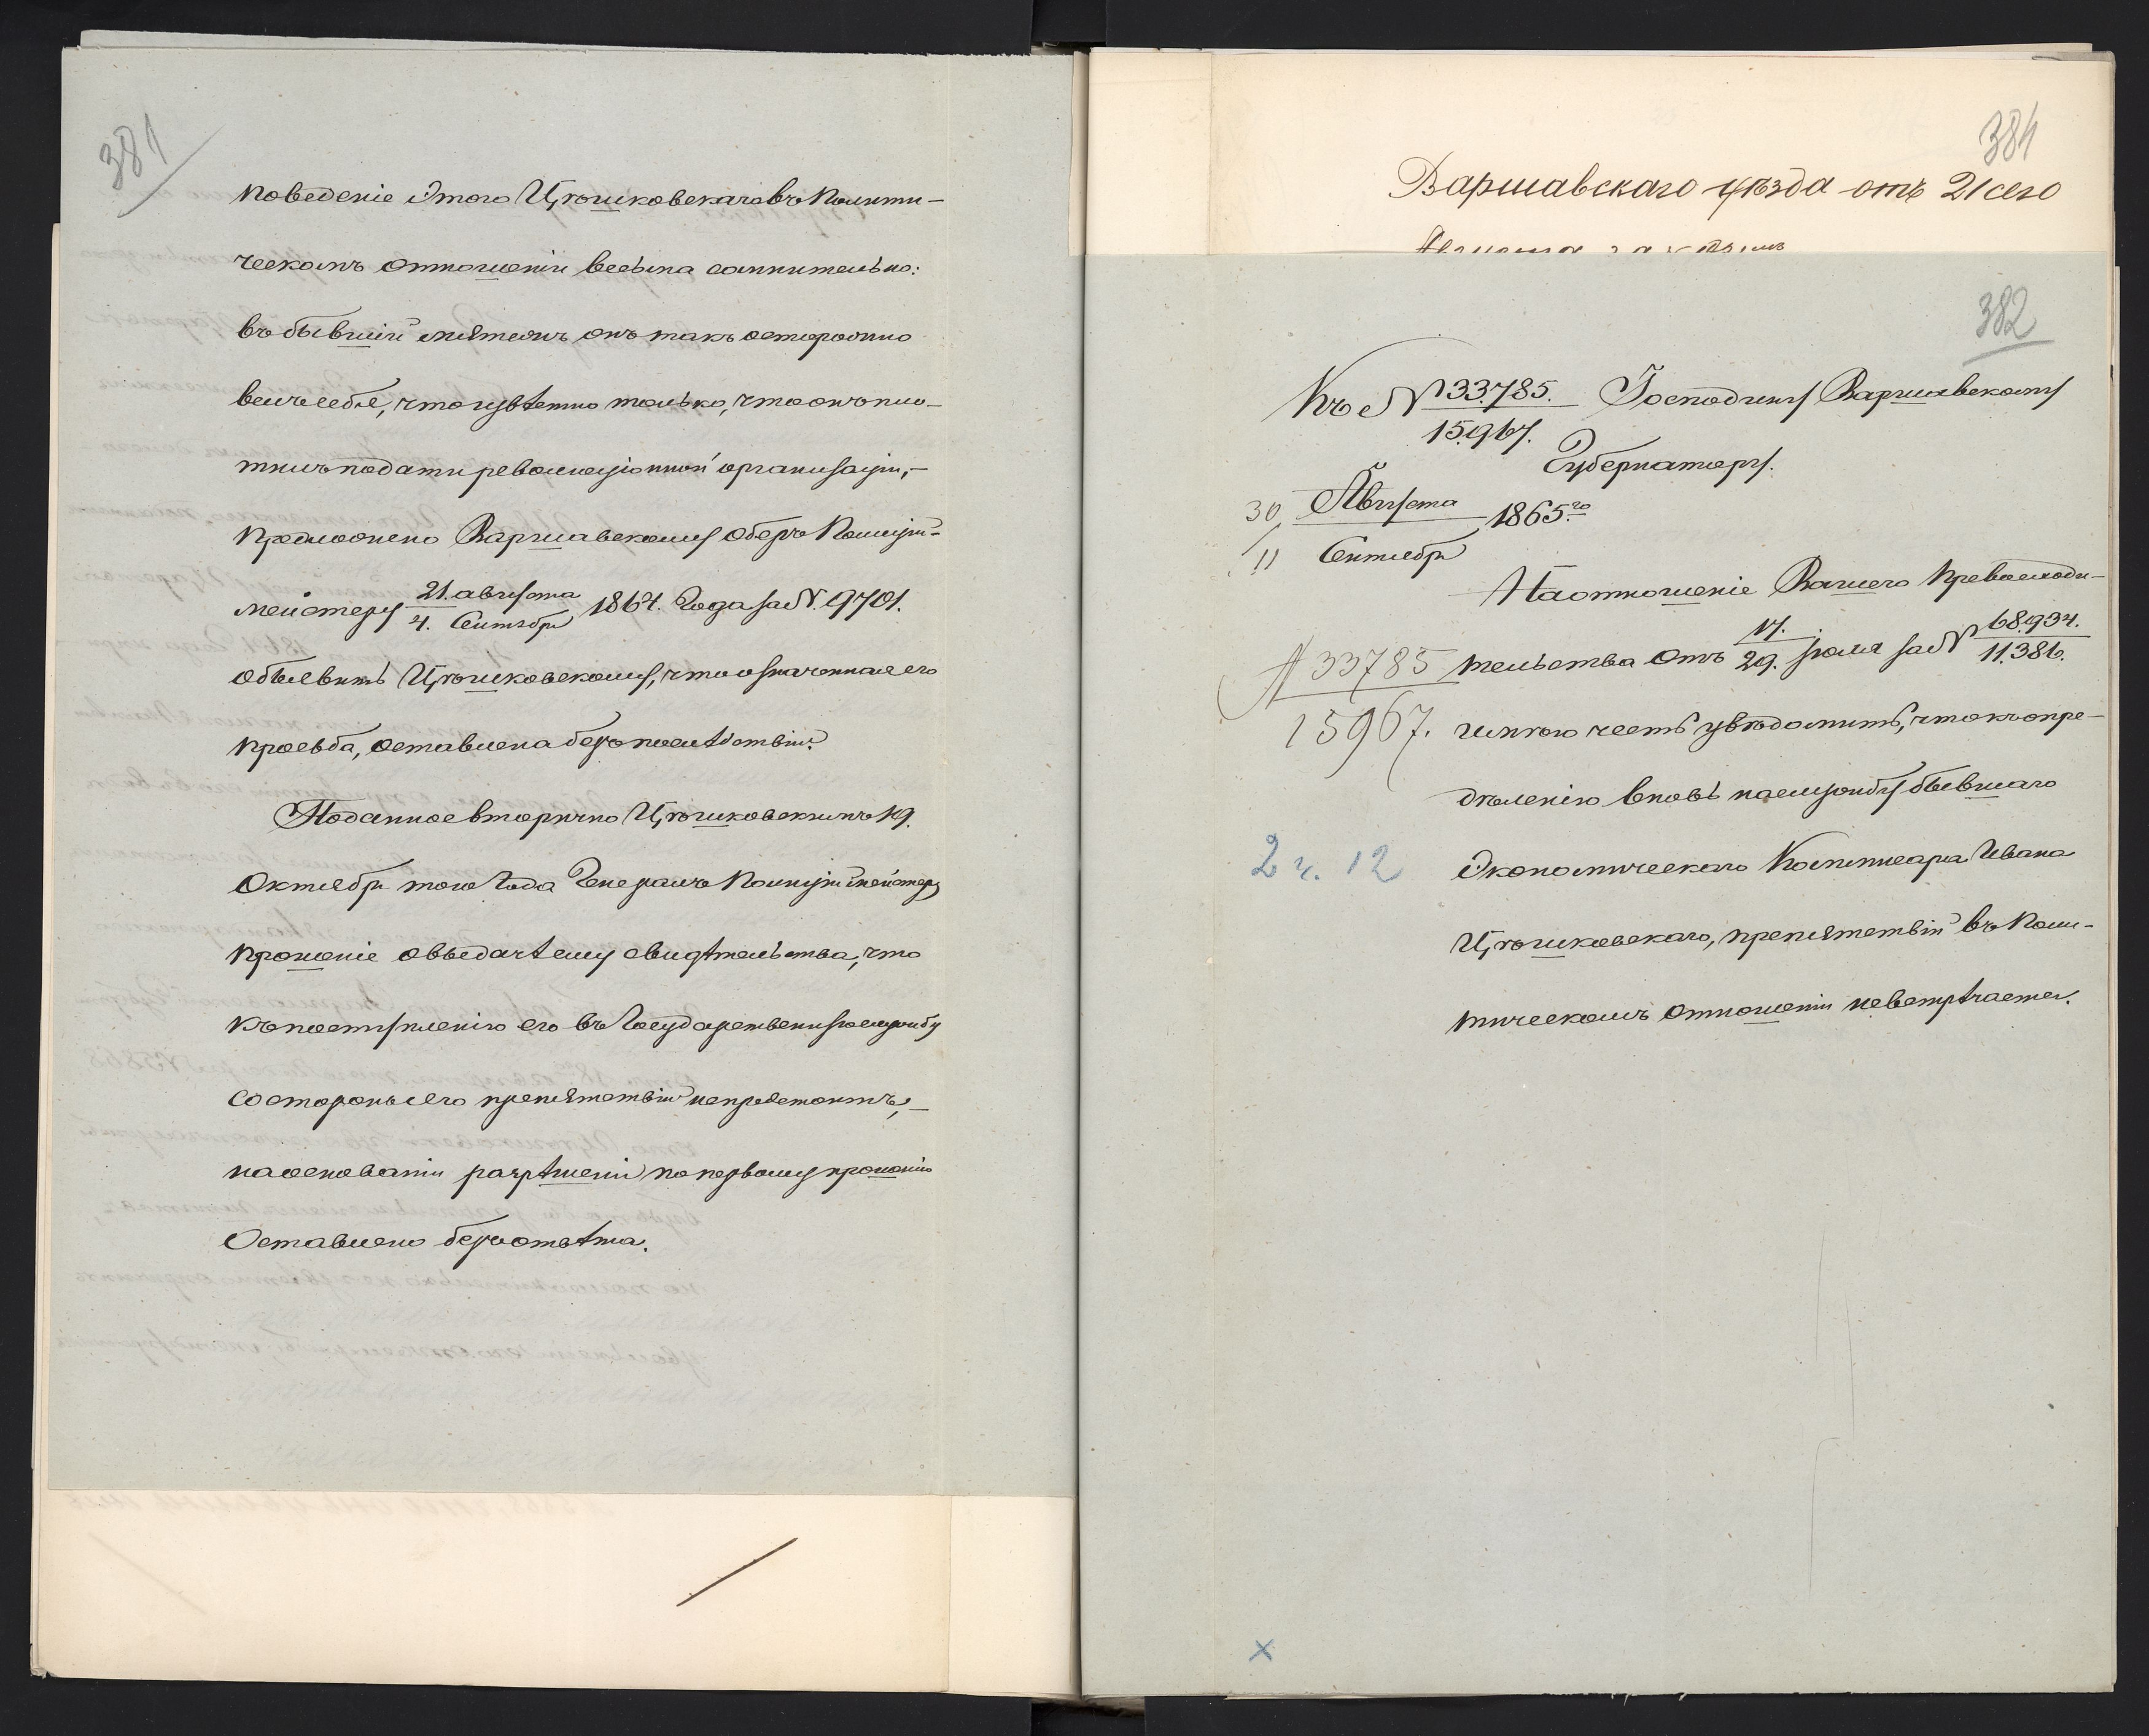 381
поведеніе этого Цѣшковскаго въ полити-
ческомъ отношеніи весьма сомнительно:
въ бывшій мятежъ онъ такъ осторожно
велъ себя, что извѣстно только, что онъ пла-
тилъ подати революціонной организаціи,—
предложено Варшавскому Оберъ Полиціи-
мейстеру 21. августа / 4. Сентября 1864. Года за № 9701.
объявить Цѣшковскому, что означенная его
просьба, оставлена безъ послѣдствій.
Поданное вторично Цѣшковскимъ 19.
Октября того Года Генералъ Полиціймейстеру
прошеніе о выдачѣ ему свидѣтельства, что
къ поступленію его въ Государственную службу
со стороны его препятствій не предстоитъ,—
на основаніи разрѣшенія по первому прошенію
Оставлено безъ отвѣта.
384
Варшавскаго уѣзда отъ 21 сего
382
Къ № 33.785. / 15.967. Господину Варшавскому
Губернатору.
30 Августа / 11 Сентября 1865.го
На отношеніе Вашего Превосходи-
№ 33785 / 15967. тельства отъ 17. / 29. Іюля за № 68.934. / 11.386.
имѣю честь увѣдомить, что къ опре-
дѣленію вновь на службу бывшаго
2 ч. 12 Экономическаго Коммиссара Ивана
Цѣшковскаго, препятствій въ поли-
тическомъ отношеніи не встрѣчается.